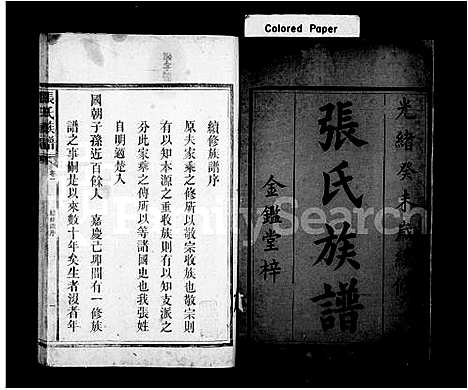 Colored Paper
光緒癸未
張氏族譜
金鑑堂梓
FamilySearch
續修族譜序
原夫家乘之修所以敬宗收族也敬宗則
有以知本源之重收族則有以知支派之
分此家乘之傳所以等諸國史也我張姓
自明適楚人
國朝子孫近百餘人 嘉慶己卯間有一修族
譜之事嗣是以來數十年矣生者沒者年
張氏族譜